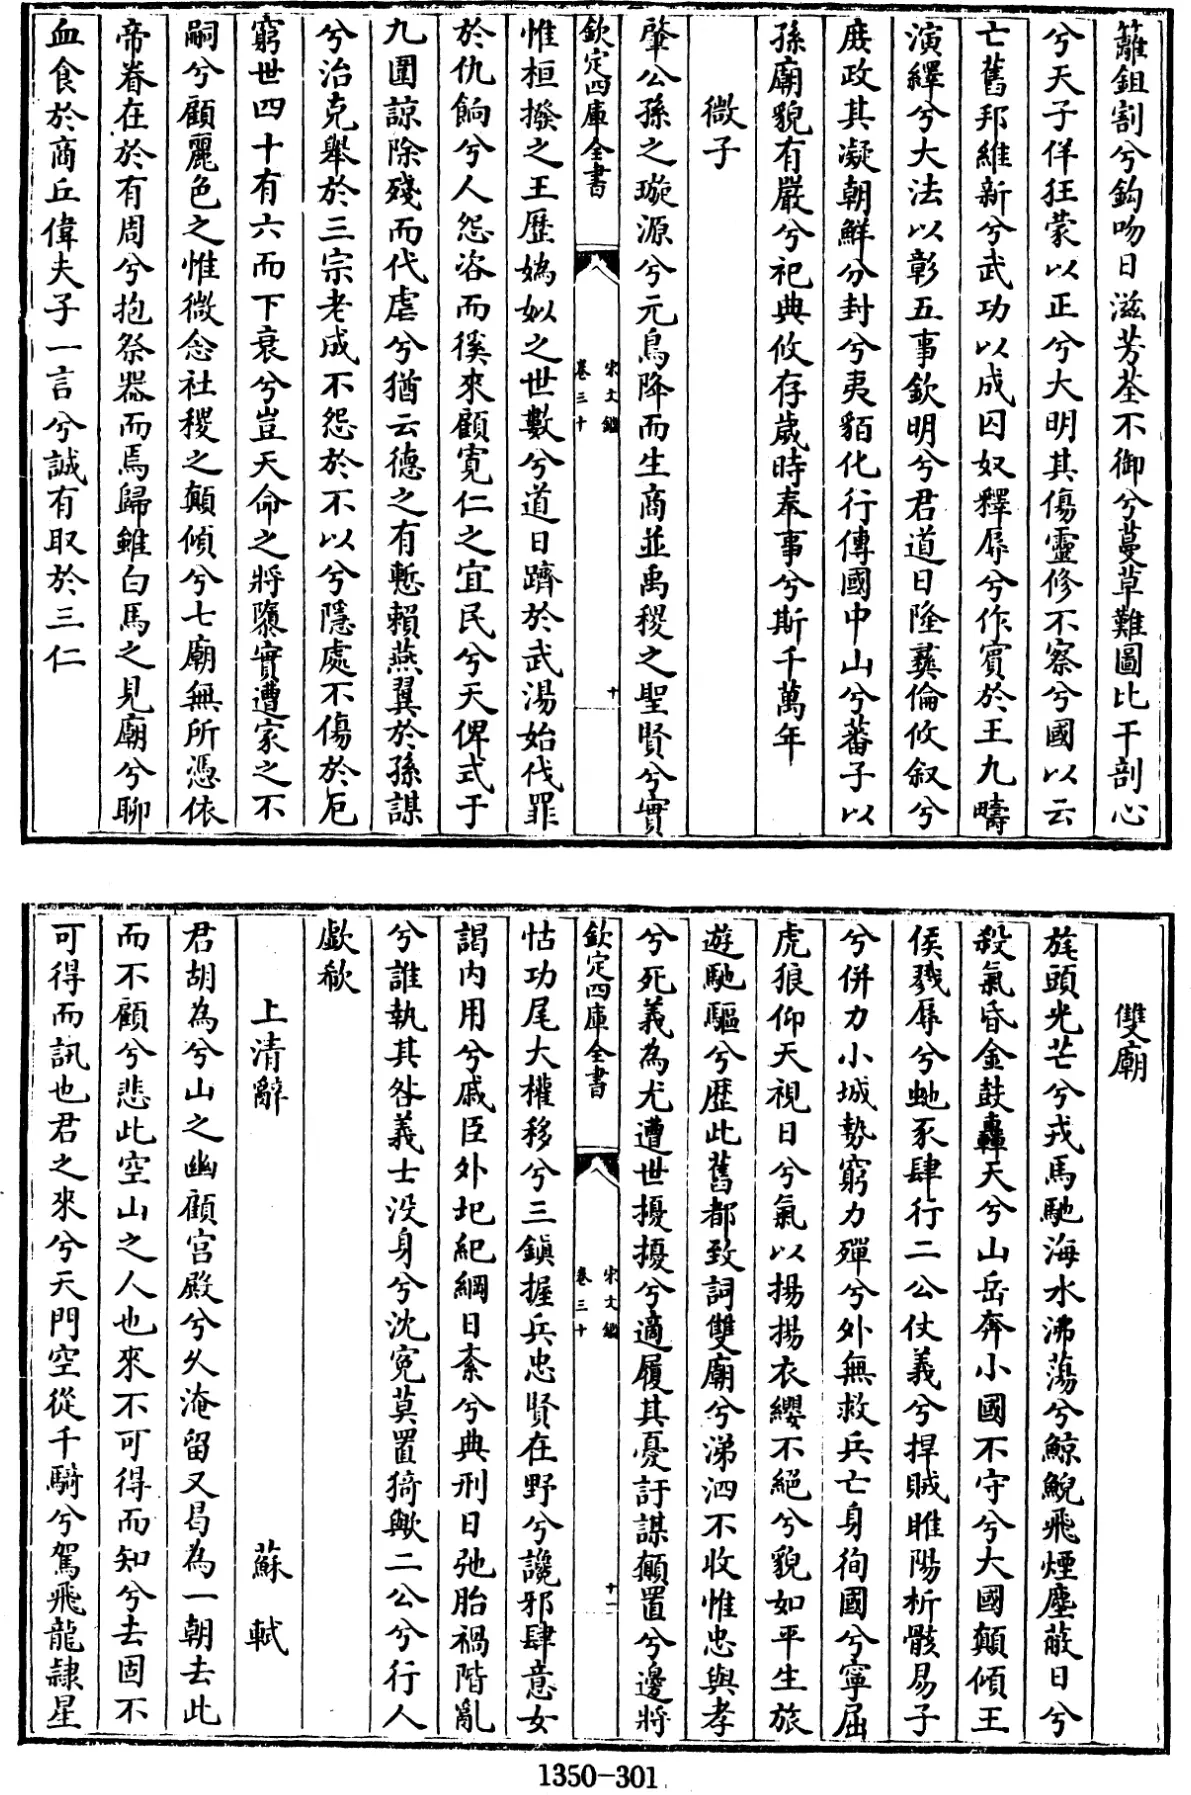 蘺鉏割兮鈎吻日滋芳荃不御兮蔓草難圖比干剖心
兮天子佯狂蒙以正兮大明其傷靈修不察兮國以云
亡舊邦維新兮武功以成囚奴釋辱兮作賓於王九疇
演繹兮大法以彰五事欽明兮君道日隆彞倫攸叙兮
庶政其凝朝鮮分封兮夷貊化行傳國中山兮蕃子以
孫廟貌有嚴兮祀典攸存歲時奉事兮斯千萬年
微子
肇公孫之璇源兮元鳥降而生商並禹稷之聖賢兮實
欽定四庫全書
宋文鑑
卷三十
十
惟桓撥之王歷媯姒之世數兮道日躋於武湯始伐罪
於仇餉兮人怨咨而徯來顧寛仁之宜民兮天俾式于
九圍諒除殘而代虐兮猶云德之有慙賴燕翼於孫謀
兮治克舉於三宗老成不怨於不以兮隱處不傷於厄
窮世四十有六而下衰兮豈天命之將隳實遭家之不
嗣兮顧麗色之惟微念社稷之顛傾兮七廟無所憑依
帝眷在於有周兮抱祭器而焉歸雖白馬之見廟兮聊
血食於商丘偉夫子一言兮誠有取於三仁
雙廟
旄頭光芒兮戎馬馳海水沸蕩兮鯨鯢飛煙塵蔽日兮
殺氣昏金鼓轟天兮山岳奔小國不守兮大國顛傾王
侯戮辱兮虵豕肆行二公仗義兮捍賊睢陽析骸易子
兮併力小城勢窮力殫兮外無救兵亡身徇國兮寧屈
虎狼仰天視日兮氣以揚揚衣纓不絕兮貌如平生旅
遊馳驅兮歴此舊都致詞雙廟兮涕泗不收惟忠與孝
兮死義為尤遭世擾擾兮適履其憂訏謀顛置兮邊將
欽定四庫全書
宋文鑑
卷三十
十一
怙功尾大權移兮三鎮握兵忠賢在野兮讒邪肆意女
謁内用兮戚臣外圯紀綱日紊兮典刑日弛胎禍階亂
兮誰執其咎義士没身兮沈寃莫置猗歟二公兮行人
歔欷
上清辭 蘇軾
君胡為兮山之幽顧宫殿兮乆淹留又曷為一朝去此
而不顧兮悲此空山之人也來不可得而知兮去固不
可得而訊也君之來兮天門空從千騎兮駕飛龍隷星
1350-301